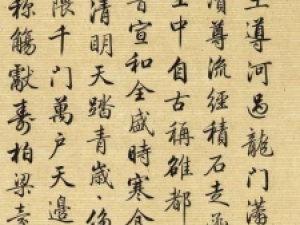 王導河過龍門瀟
濱尊流經積石走
里中自古称雄都
昔宣和全盛時寒食
清明天踏青歲
限千門萬户天邊
称觴獻壽柏梁臺